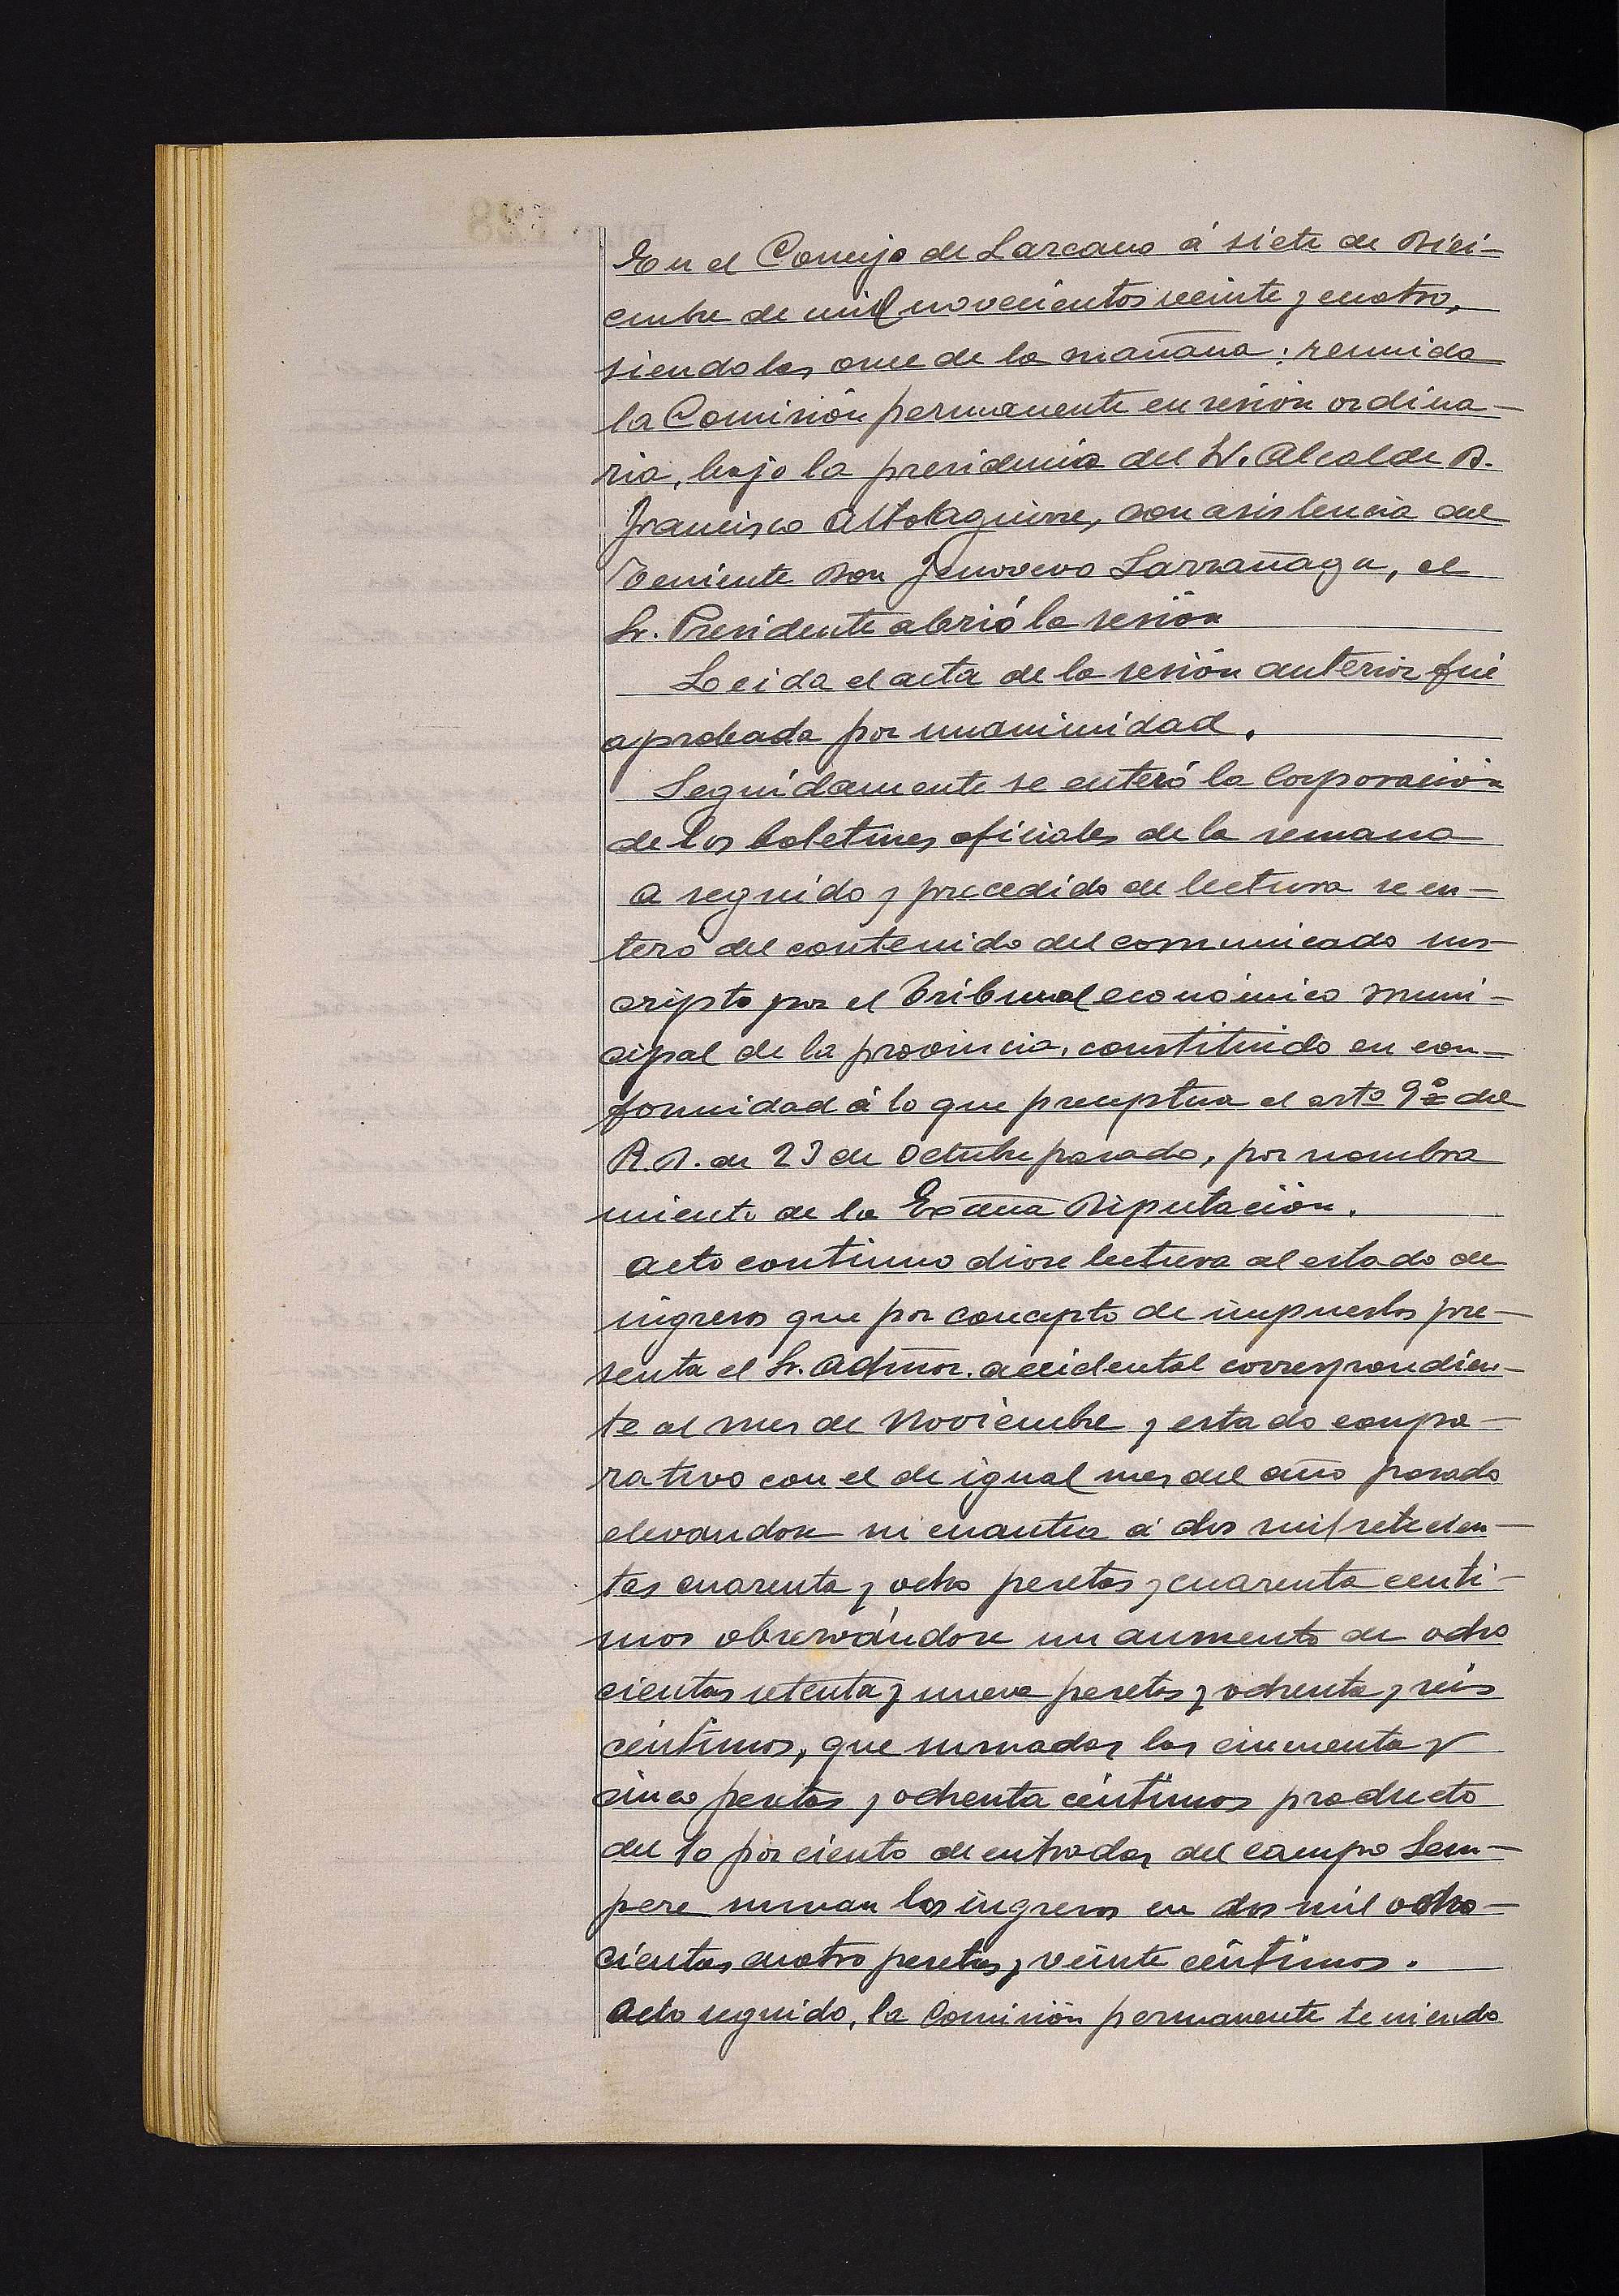 En el Concejo de Lazcano á siete de Dici-
embre de mil novecientos veinte y cuatro,
siendo las once de la mañana: reunida
la Comisión permanente en sesión ordina-
ria, bajo la presidencia del Sr. Alcalde D.
Francisco Altolaguirre, con asistencia del
Teniente Don Jenovevo Larrañaga, el
Sr. Presidente abrió la sesión
Leida el acta de la sesión anterior fué
aprobada por unanimidad.
Seguidamente se enteró la Corporación
de los boletines oficiales de la semana
A seguido y precedido de lectura se en-
teró del contenido del comunicado sus-
cripto por el Tribunal económico muni-
cipal de la provincia, constituido en con-
formidad á lo que preceptua el artº 9º del
R.D. de 23 de Octubre pasado, por nombra
miento de la Excma Diputación.
Acto continuo diose lectura al estado de
ingresos que por concepto de impuestos pre-
senta el Sr. Admor. accidental correspondien-
te al mes de Noviembre y estado compa-
rativo con el de igual mes del año pasado
elevandose su cuantia á dos mil setecien-
tas cuarenta y ocho pesetas y cuarenta centi-
mos observándose un aumento de ocho
cientas setenta y nueve pesetas y ochenta y seis
céntimos, que sumadas las cincuenta y
cinco pesetas y ochenta céntimos producto
del 10 por ciento de entradas del campo Sem-
pere suman los ingresos en dos mil ocho-
cientas cuatro pesetas y veinte céntimos.
Acto seguido, la Comisión permanente teniendo